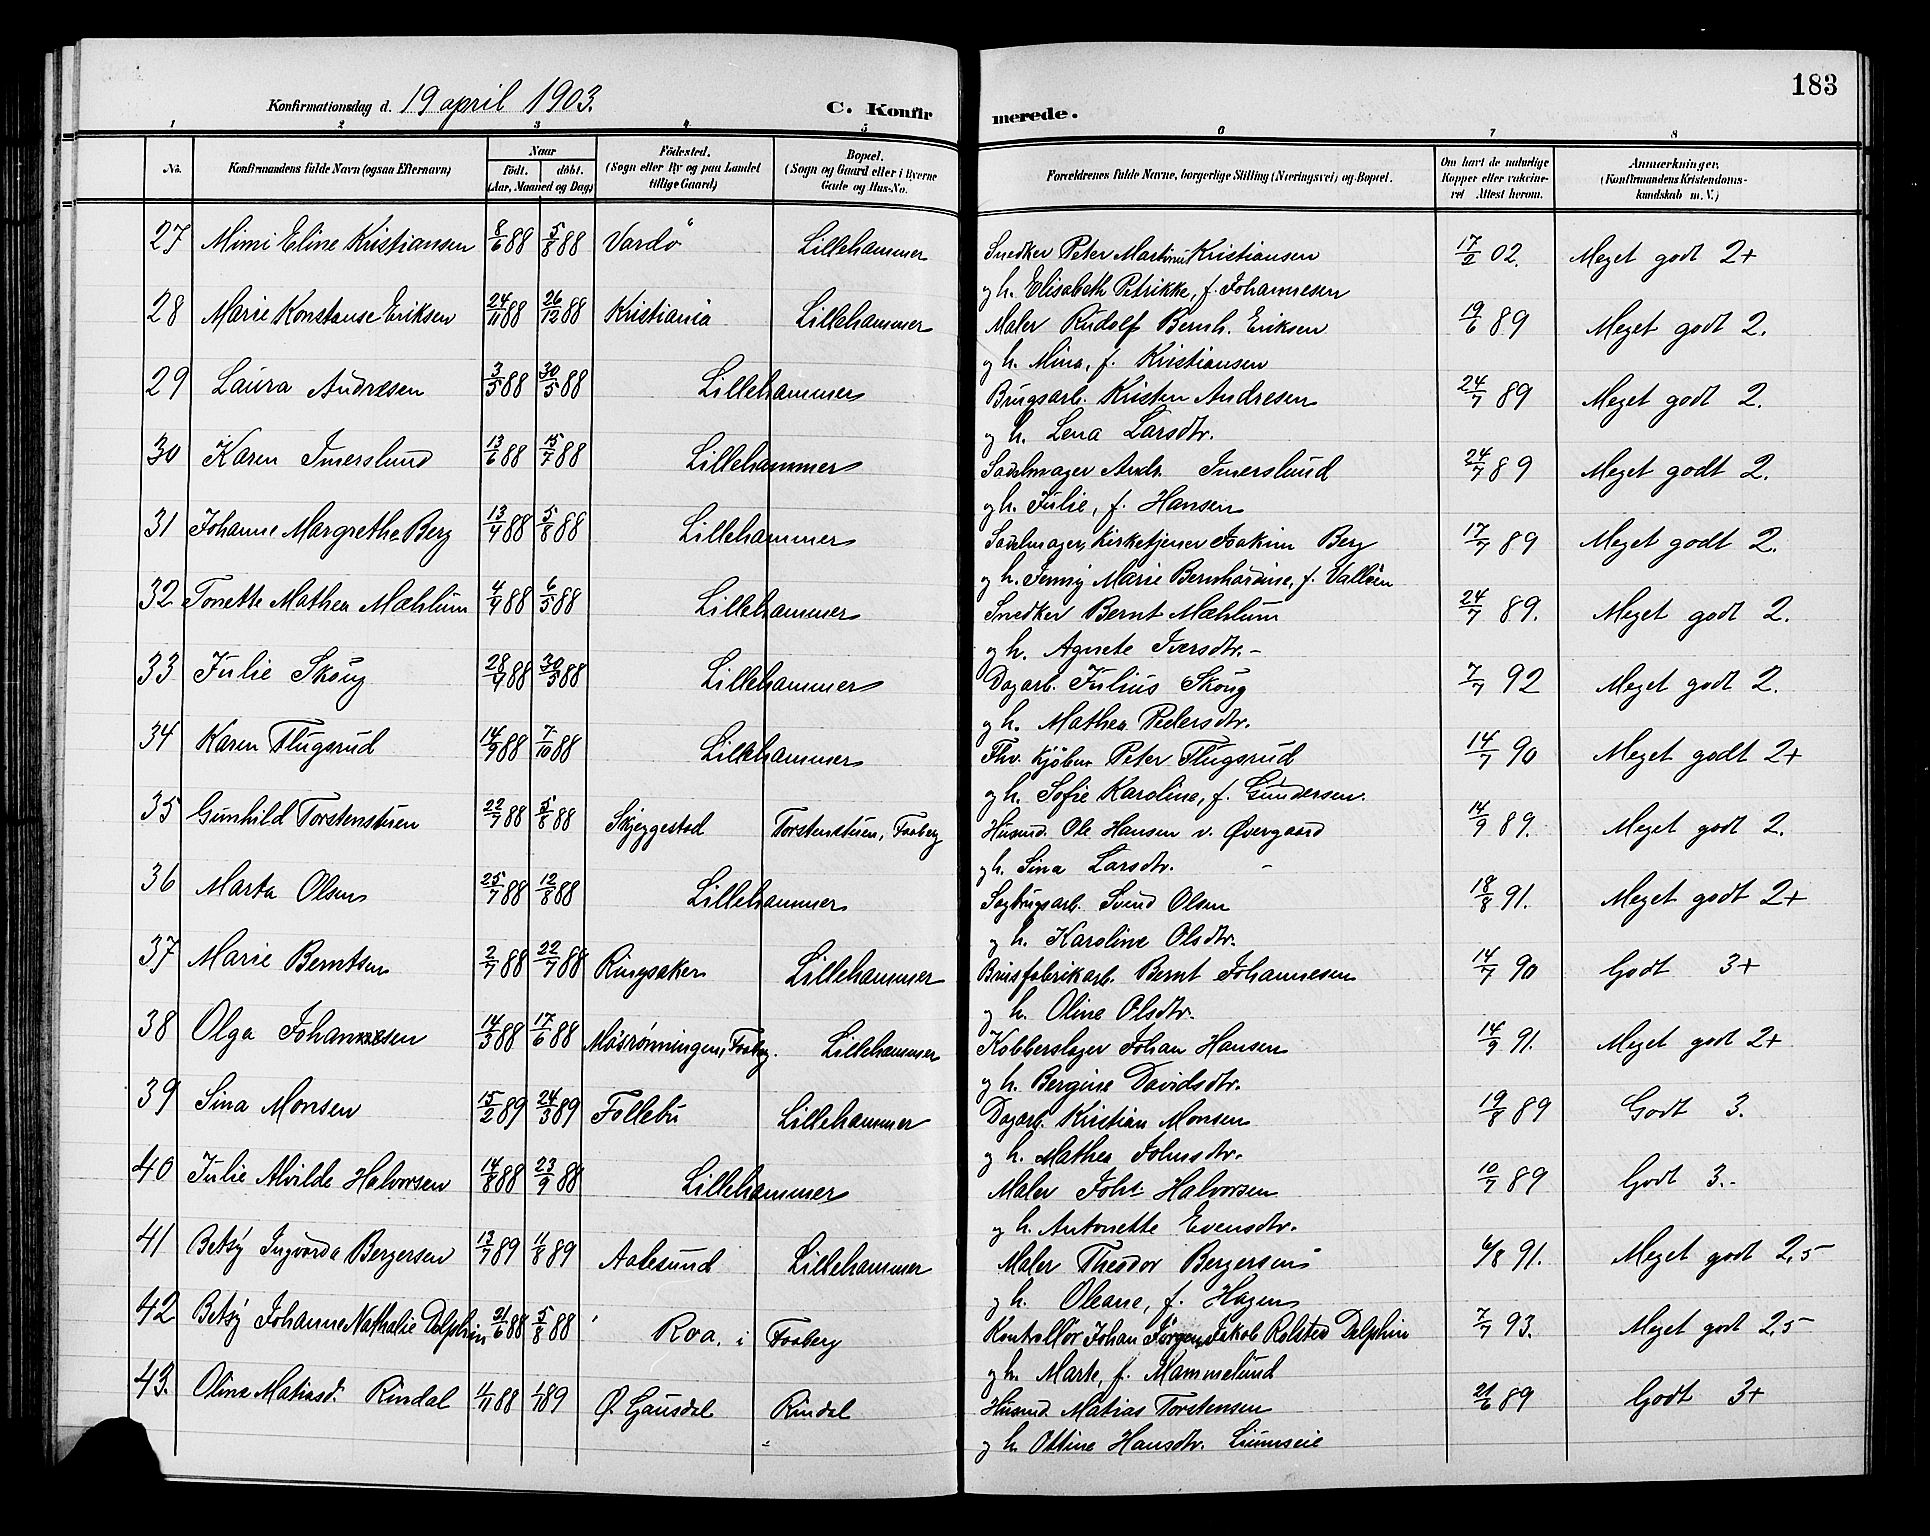 183
Konfirmationsdag d. 19 april 1903. C. Konfirmerede.
1 2 3 4 5 6 7 8
No. Konfirmandens fulde Navn (ogsaa Efternavn) Naar født. døbt. (Aar, Maaned og Dag) Fødested. (Sogn eller By og paa Landet tillige Gaard) Bopæl. (Sogn og Gaard eller i Byerne Gade og Hus-No. Forældrenes fulde Navne, borgerlige Stilling (Næringsvei) og Bopæl. Om havt de naturlige Kopper eller vaccineret Attest herom. Anmærkninger. (Konfirmandens Kristendomskundskab m. V.)
27 Mimi Eline Kristiansen 8/6 88 5/8 88 Vardö Lillehammer Snedker Peter Martinius Kristiansen 17/2 02. Meget godt 2+
og h. Elisabeth Petrikke, f. Johannesen
28 Marie Konstanse Eriksen 24/11 88 26/12 88 Kristiania Lillehammer Maler Rudolf Bernh. Eriksen 19/6 89 Meget godt 2.
og h. Mina, f. Kristiansen
29 Laura Andresen 3/5 88 30/5 88 Lillehammer Brugsarb. Kristen Andresen 24/7 89 Meget godt 2.
og h. Lena Larsdtr.
30 Karen Imerslund 13/6 88 15/7 88 Lillehammer Sadelmager Andr. Imerslund 24/7 89 Meget godt 2.
og h. Julie, f. Hansen
31 Johanne Margrethe Berg 13/4 88 5/8 88 Lillehammer Sadelmager, Kirketjener Joakim Berg 17/7 89 Meget godt 2.
og h. Jenny Marie Bernhardine, f. Valløen
32 Tonette Mathea Mæhlum 4/4 88 6/5 88 Lillehammer Snedker Bernt Mæhlum 24/7 89. Meget godt 2.
og h. Agnete Iversdtr. -
33 Julie Skoug 28/4 88 30/5 88 Lillehammer Dagarb. Julius Skoug 7/7 92 Meget godt 2.
og h. Mathea Pedersdtr.
34 Karen Flugsrud 14/9 88 7/10 88 Lillehammer Fhv. Kjöbm. Peter Flugsrud 14/7 90 Meget godt 2+
og h. Sofie Karoline, f. Gundersen.
35 Gunhild Torstenstuen 22/7 88 5/8 88 Skjeggestad Torstenstuen, Faaberg Husmd. Ole Hansen v. Øvergaard 14/9 89. Meget godt 2.
og h. Sina Larsdtr. -
36 Marta Olsen 25/7 88 12/8 88 Lillehammer Sagbrugsarb. Svend Olsen 18/8 91. Meget godt 2+
og h. Karoline Olsdtr.
37 Marie Berntsen 2/7 88 22/7 88 Ringsaker Lillehammer Brusfabrikarb. Bernt Johannesen 14/7 90 Godt 3+
og h. Oline Olsdtr.
38 Olga Johansen 14/3 88 17/6 88 Mösrönningen, Faaberg. Lillehammer Kobberslager Johan Hansen 14/9 91. Meget godt 2+
og h. Bergine Davidsdtr.
39 Sina Monsen 15/2 89 24/3 89 Follebu Lillehammer Dagarb. Kristian Monsen 19/8 89 Godt 3.
og h. Mathea Johnsdtr.
40 Julie Alvilde Halvorsen 14/8 88 23/9 88 Lillehammer Maler Joh Halvorsen 10/7 89 Godt 3.-
og h. Antonette Evensdtr.
41 Betsy Ingvarda Bergersen 13/7 89 11/8 89 Aalesund Lillehammer Maler Theodor Bergersen 6/8 91. Meget godt 2,5
og h. Oleane, f. Hagen
42 Betsy Johanne Nathalie Delphin 21/6 88 5/8 88 Roa. i Faaberg Kontrollör Johan Jörgen Jakob Rolsted Delphin 7/7 93. Meget godt 2,5
og h. Marte, f. Mammelund
43. Olina Matiasd. Rindal 1/11 88 1/1 89 Ø. Gausdal Rindal Husmd. Matias Torstensen 21/6 89 Godt 3+
og h. Ottine Hansdtr. Liumseie